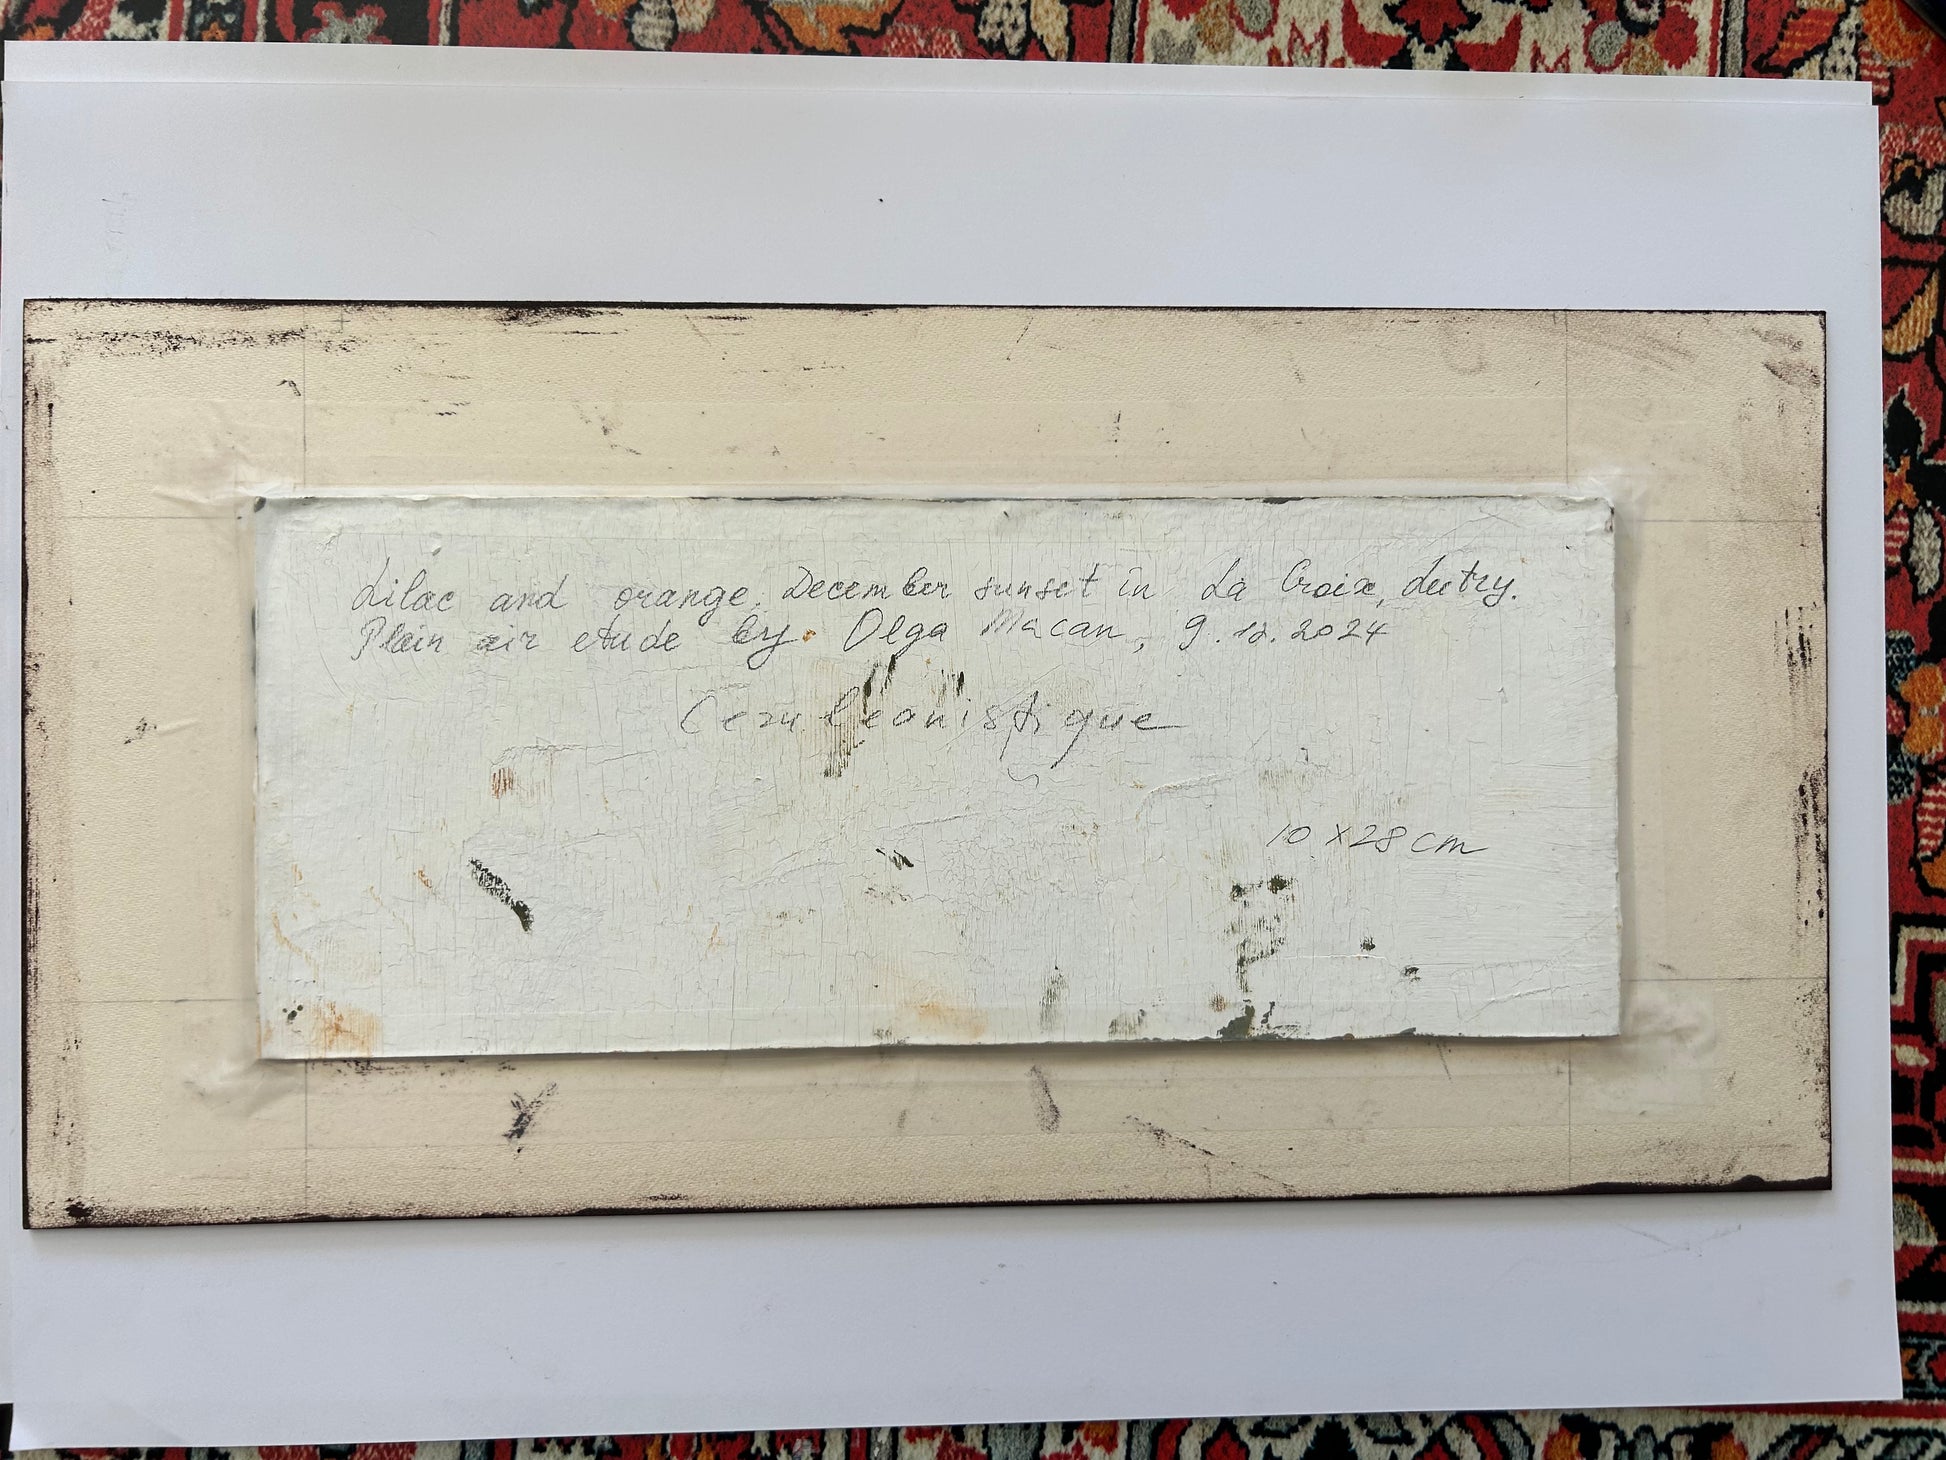 Lilac and orange. December sunset in La Croix, Lutry.
Plain air etude by Olga Macan, 9.12.2024
Ceruleanistique
10 x 28 cm